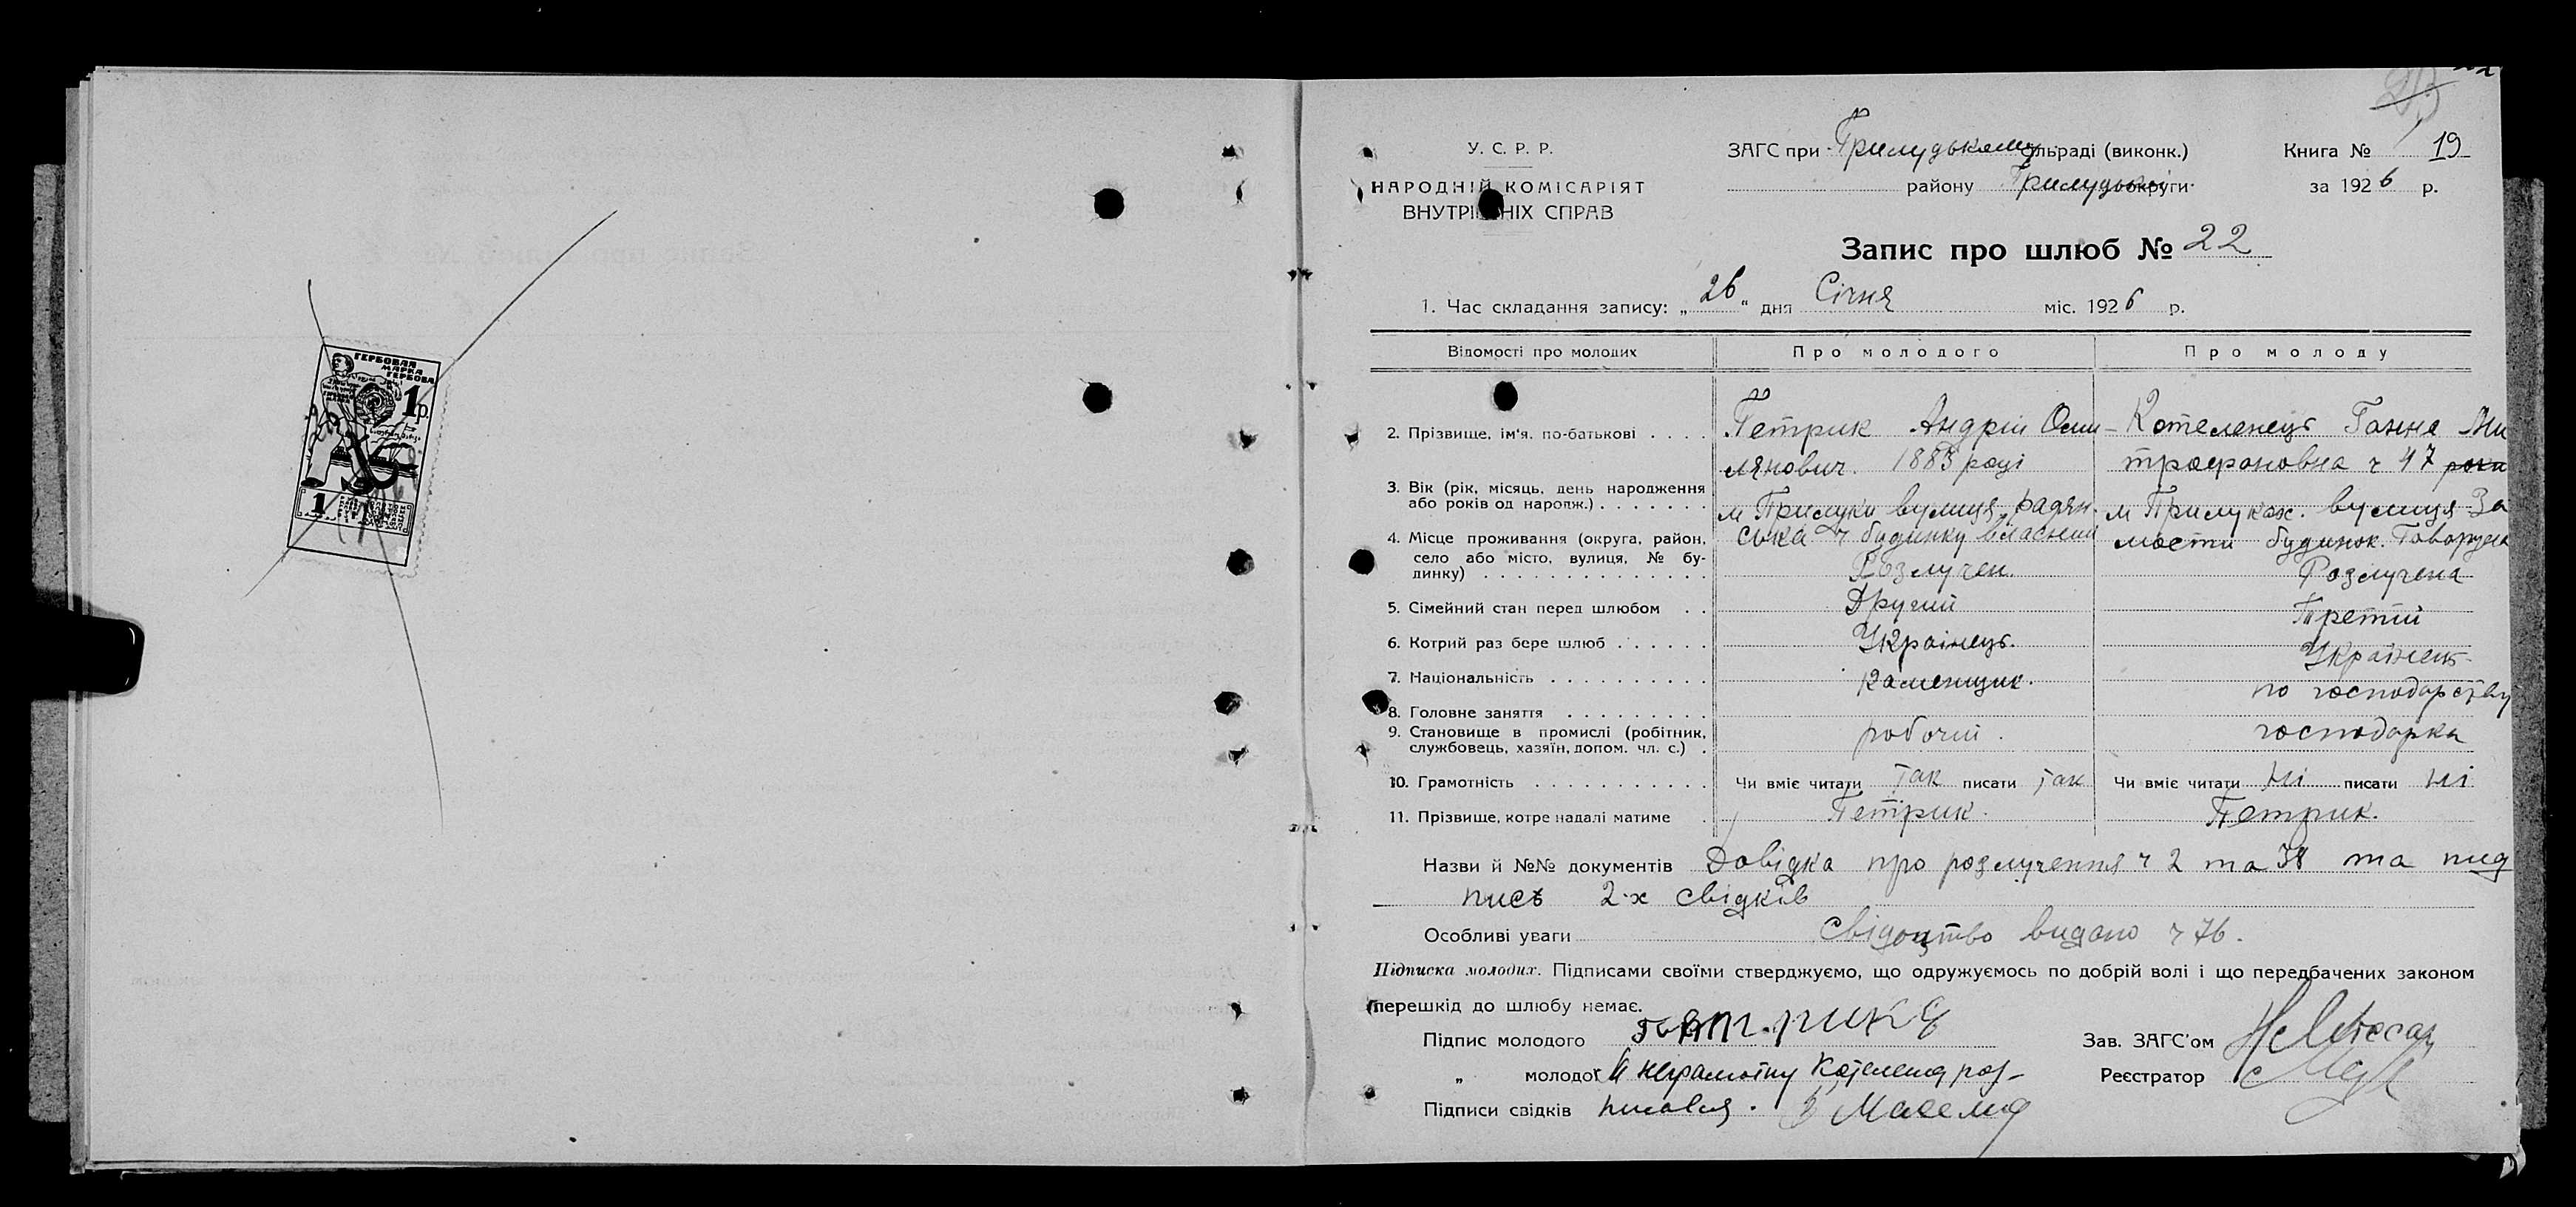 ГЕРБОВАЯ
МАРКА
ГЕРБОВА
1р.
1
У. С. Р. Р.
НАРОДНІЙ КОМІСАРІЯТ
ВНУТРІШНІХ СПРАВ
ЗАГС при Прилуцькому сільраді (виконк.)
району Прилуцької округи
Книга № 19
за 1926 р.
Запис про шлюб № 22
1. Час складання запису: „26" дня Січня міс. 1926 р.
Відомості про молодих
Про молодого
Про молоду
2. Прізвище, ім'я, по-батькові
Петрик Андрій Омелянович. 1883 році
Котеленець Ганна Митрофановна ч 47 роки
3. Вік (рік, місяць, день народження
або років од народж.)
м Прилуки вулиця радян.
ська ч будинку власний
м Прилуках. вулиця За
мости будинок.
4. Місце проживання (округа, район,
село або місто, вулиця, № бу-
динку)
Розлучен.
Розлучена
5. Сімейний стан перед шлюбом
Другий
Третій
6. Котрий раз бере шлюб
Українець.
Українск
7. Національність
каменщик.
по господарству
8. Головне заняття
9. Становище в промислі (робітник,
службовець, хазяїн, допом. чл. с.)
робочий.
господарка
10. Грамотність
Чи вміє читати так писати так
Чи вміє читати ні писати ні
11. Прізвище, котре надалі матиме
Петрик.
Петрик.
Назви й №№ документів Довідка про розлучення ч 2 та 38 та пид
пись 2-х свідків
Особливі уваги Свідоцтво видано ч 76.
Підписка молодих. Підписами своїми стверджуємо, що одружуємось по добрій волі і що передбачених законом
перешкід до шлюбу немає.
Підпис молодого
Зав. ЗАГС'ом
„ молодої неграмотну Котеленец роз-
Реєстратор
Підписи свідків писався.